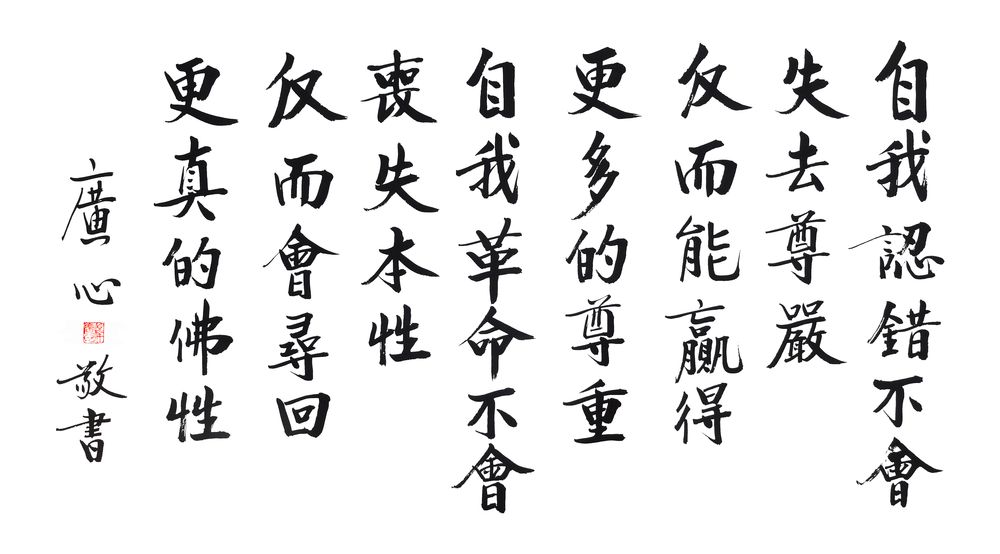 自我認錯不會
失去尊嚴
反而能贏得
更多的尊重
自我革命不會
喪失本性
反而會尋回
更真的佛性
廣心
敬書